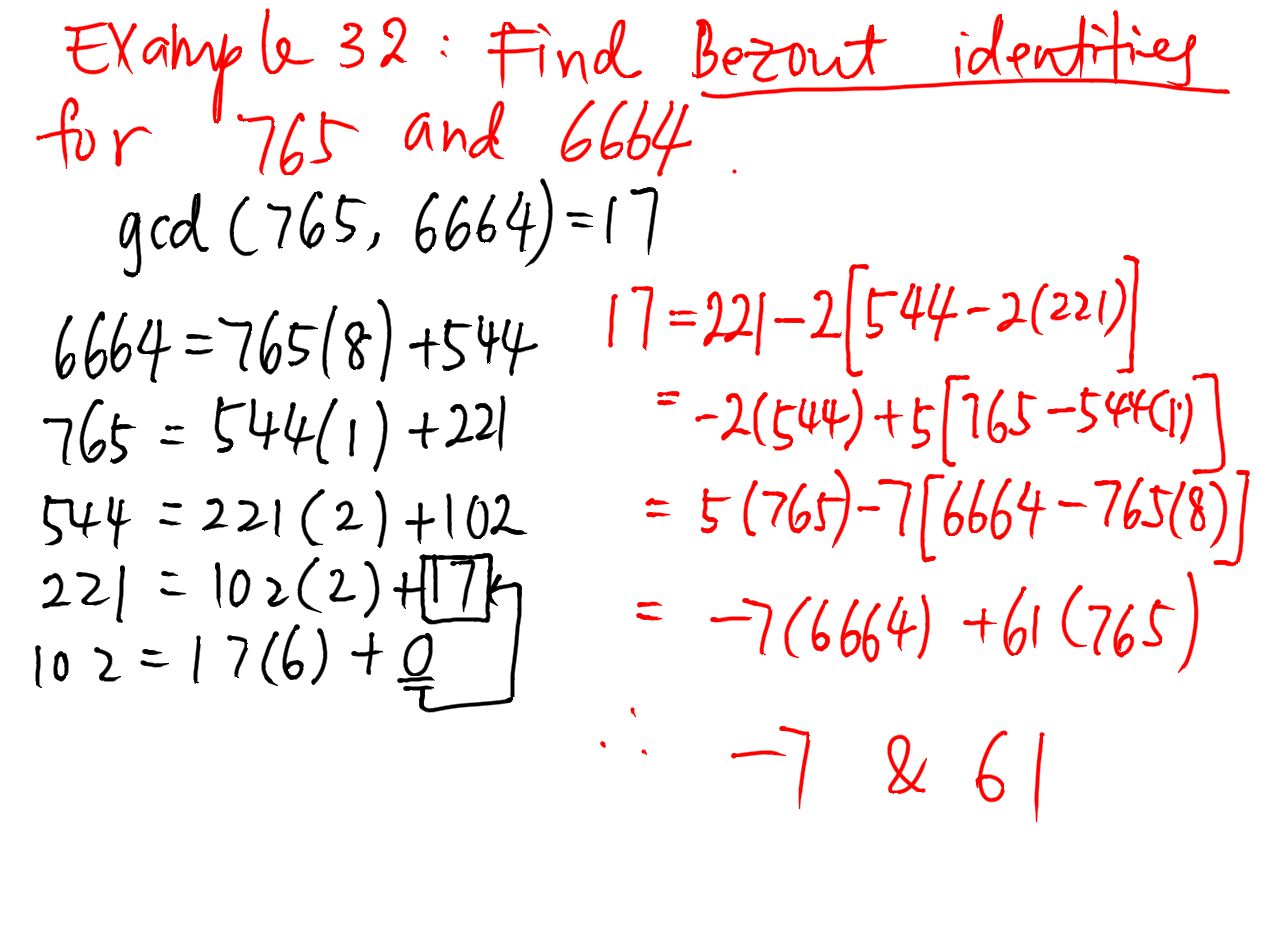 Example 32: Find Bezout identities
for 765 and 6664.
gcd(765, 6664)=17
6664=765(8)+544
765 = 544(1)+221
544 = 221(2)+102
221 = 102(2)+17
102 = 17(6)+0
17=221-2[544-2(221)]
= -2(544)+5[765-544(1)]
= 5(765)-7[6664-765(8)]
= -7(6664) +61(765)
∴ -7 & 61